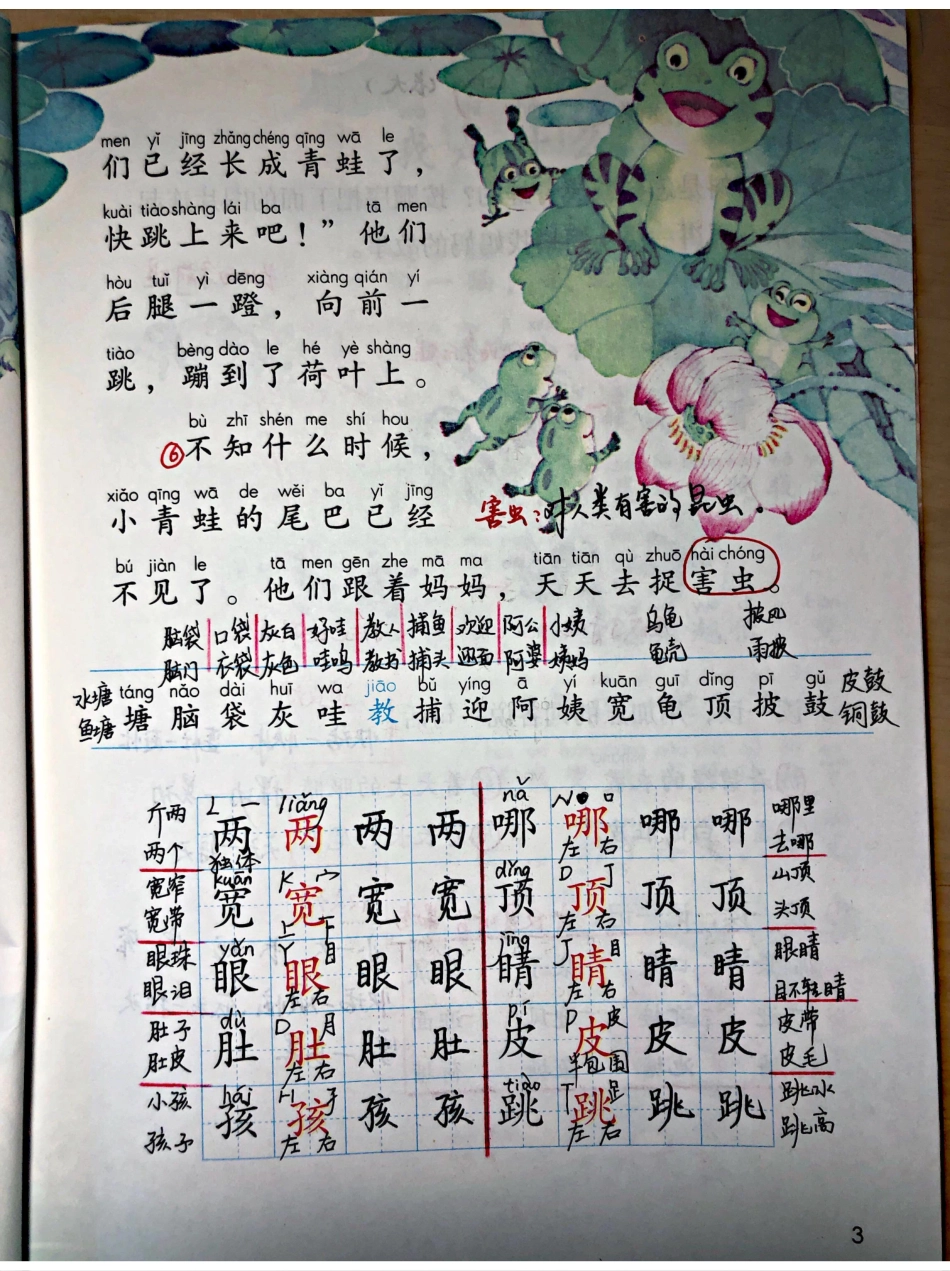 men yǐ jīng zhǎng chéng qīng wā le
们已经长成青蛙了，
kuài tiào shàng lái ba tā men
快跳上来吧！”他们
hòu tuǐ yì dēng xiàng qián yí
后腿一蹬，向前一
tiào bèng dào le hé yè shàng
跳，蹦到了荷叶上。
bù zhī shén me shí hou
⑥不知什么时候，
xiǎo qīng wā de wěi ba yǐ jīng
小青蛙的尾巴已经
害虫：对人类有害的昆虫。
bú jiàn le tā men gēn zhe mā ma tiān tiān qù zhuō hài chóng
不见了。他们跟着妈妈，天天去捉害虫。
脑袋 口袋 灰白 好哇 教人 捕鱼 欢迎 阿公 小姨 乌龟 披风
脑门 衣袋 灰色 哇呜 教书 捕头 迎面 阿婆 姨妈 龟壳 雨披
水塘 táng nǎo dài huī wa jiāo bǔ yíng ā yí kuān guī dǐng pī gǔ 皮鼓
鱼塘 塘脑袋灰哇教捕迎阿姨宽龟顶披鼓 铜鼓
斤两 L 一 liǎng nǎ N 口 哪里
两个 两两两两 哪哪哪哪 去哪
独体 左 右
宽窄 kuān K 宀 dǐng D 丁 山顶
宽带 宽宽宽宽 顶顶顶顶 头顶
上 下 左 右
眼珠 yǎn Y 目 jīng J 目 眼睛
眼泪 眼眼眼眼 睛睛睛睛 目不转睛
左 右 左 右
肚子 dù D 月 pí P 皮 皮带
肚皮 肚肚肚肚 皮皮皮皮 皮毛
左 右 半包围
小孩 hái H 子 tiào T 足 跳水
孩子 孩孩孩孩 跳跳跳跳 跳高
左 右 左 右
3